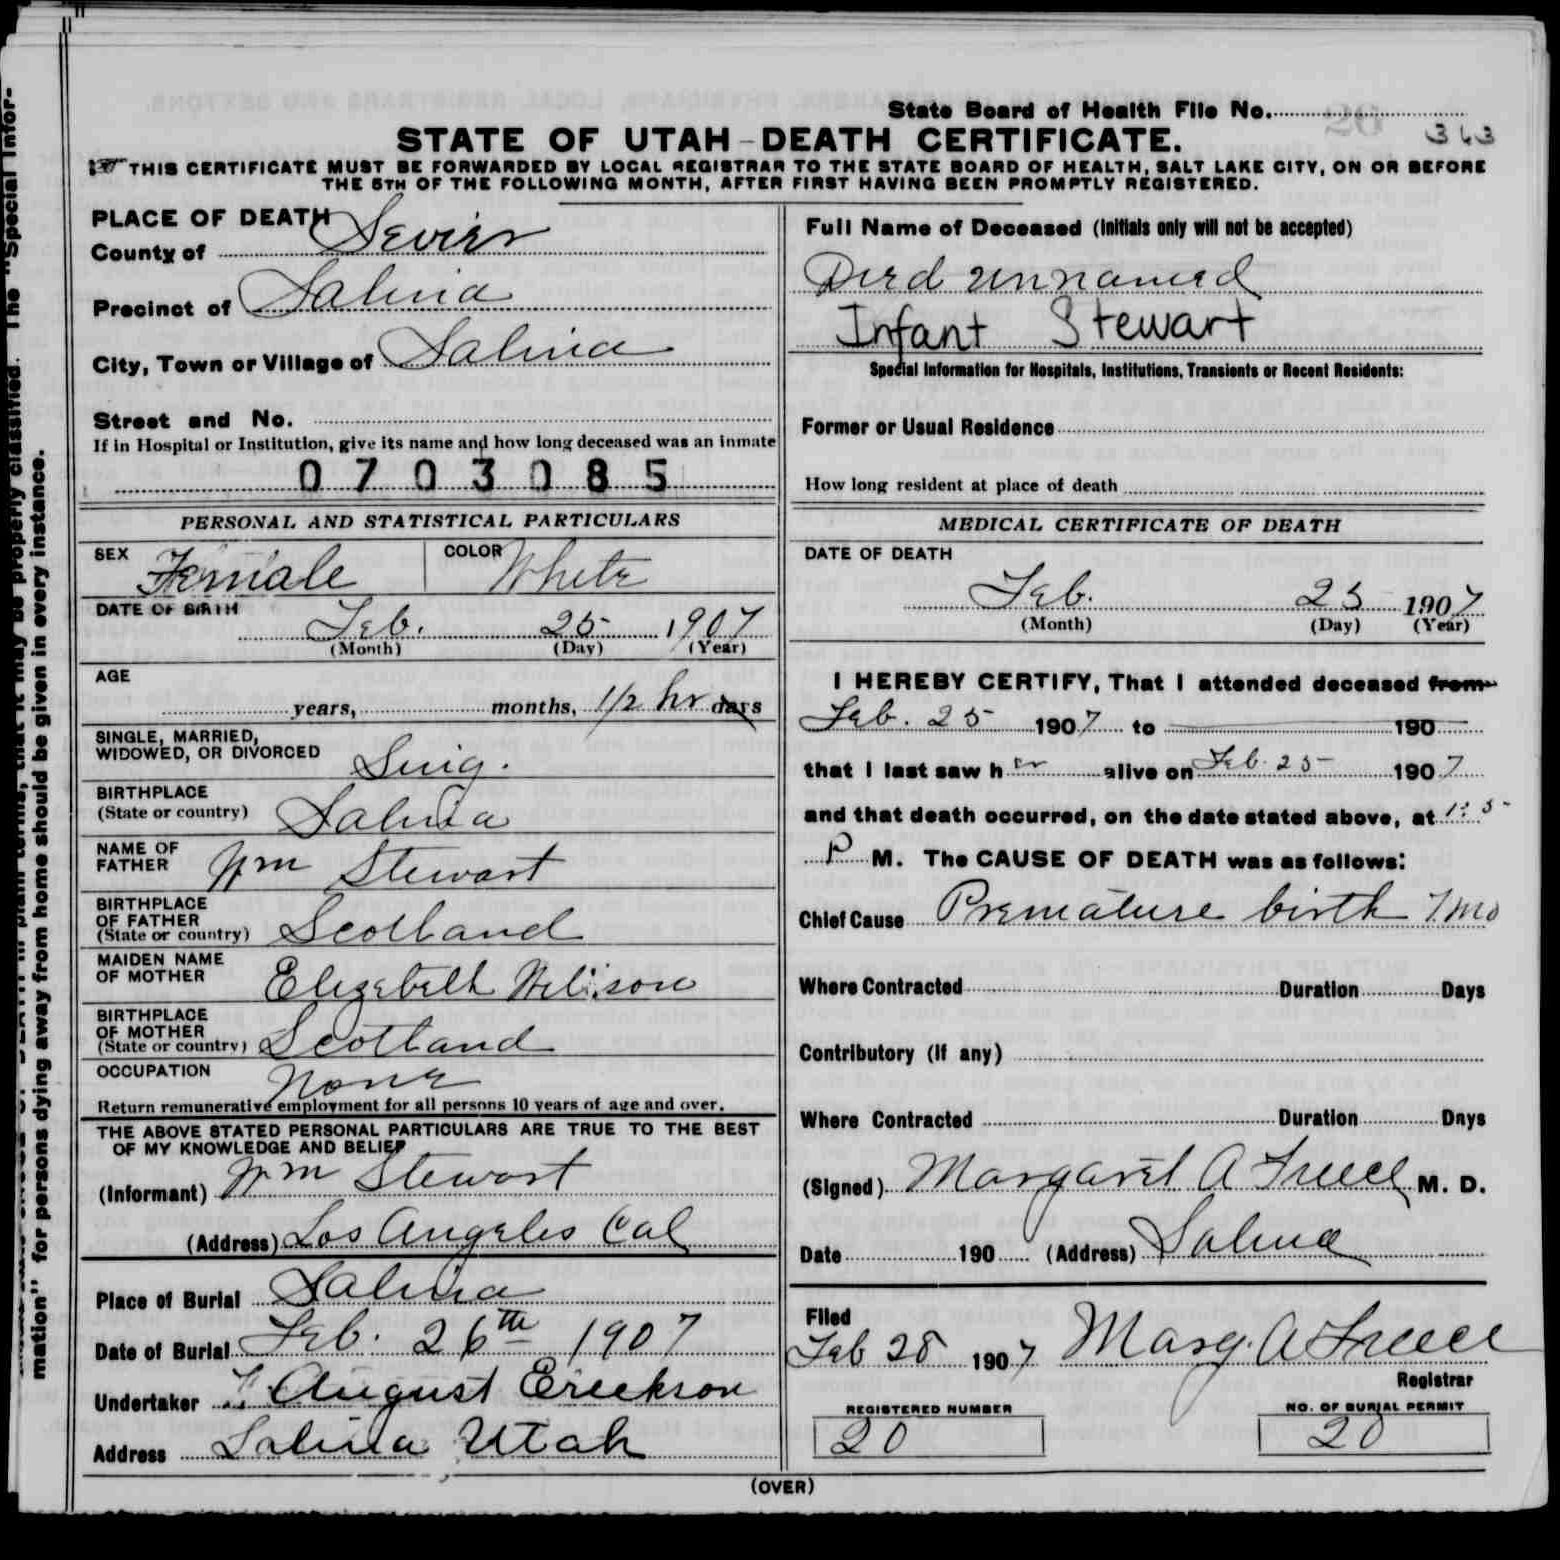 State Board of Health File No. 363
STATE OF UTAH-DEATH CERTIFICATE.
THIS CERTIFICATE MUST BE FORWARDED BY LOCAL REGISTRAR TO THE STATE BOARD OF HEALTH, SALT LAKE CITY, ON OR BEFORE
THE 5TH OF THE FOLLOWING MONTH, AFTER FIRST HAVING BEEN PROMPTLY REGISTERED.
PLACE OF DEATH
County of Sevier
Precinct of Salina
City, Town or Village of Salina
Street and No.
If in Hospital or Institution, give its name and how long deceased was an inmate
0703085
PERSONAL AND STATISTICAL PARTICULARS
SEX Female COLOR White
DATE OF BIRTH
Feb. 25 1907
(Month) (Day) (Year)
AGE
years, months, 1/2 hr days
SINGLE, MARRIED,
WIDOWED, OR DIVORCED Sing.
BIRTHPLACE
(State or country) Salina
NAME OF
FATHER Wm Stewart
BIRTHPLACE
OF FATHER
(State or country) Scotland
MAIDEN NAME
OF MOTHER Elizabeth
BIRTHPLACE
OF MOTHER
(State or country) Scotland
OCCUPATION None
Return remunerative employment for all persons 10 years of age and over.
THE ABOVE STATED PERSONAL PARTICULARS ARE TRUE TO THE BEST
OF MY KNOWLEDGE AND BELIEF
(Informant) Wm Stewart
(Address) Los Angeles Cal
Place of Burial Salina
Date of Burial Feb. 26th 1907
Undertaker August Erickson
Address Salina Utah
Full Name of Deceased (Initials only will not be accepted)
Died unnamed
Infant Stewart
Special Information for Hospitals, Institutions, Transients or Recent Residents:
Former or Usual Residence
How long resident at place of death
MEDICAL CERTIFICATE OF DEATH
DATE OF DEATH
Feb. 25 1907
(Month) (Day) (Year)
I HEREBY CERTIFY, That I attended deceased from
Feb. 25 1907 to 190
that I last saw her alive on Feb. 25 1907
and that death occurred, on the date stated above, at
P M. The CAUSE OF DEATH was as follows:
Chief Cause Premature birth 7 mo
Where Contracted Duration Days
Contributory (If any)
Where Contracted Duration Days
(Signed) Margaret A Freece M. D.
Date 190 (Address) Salina
Filed
Feb 28 1907 Marg. A Freece
Registrar
REGISTERED NUMBER
20
NO. OF BURIAL PERMIT
20
(OVER)
mation" for persons dying away from home should be given in every instance.